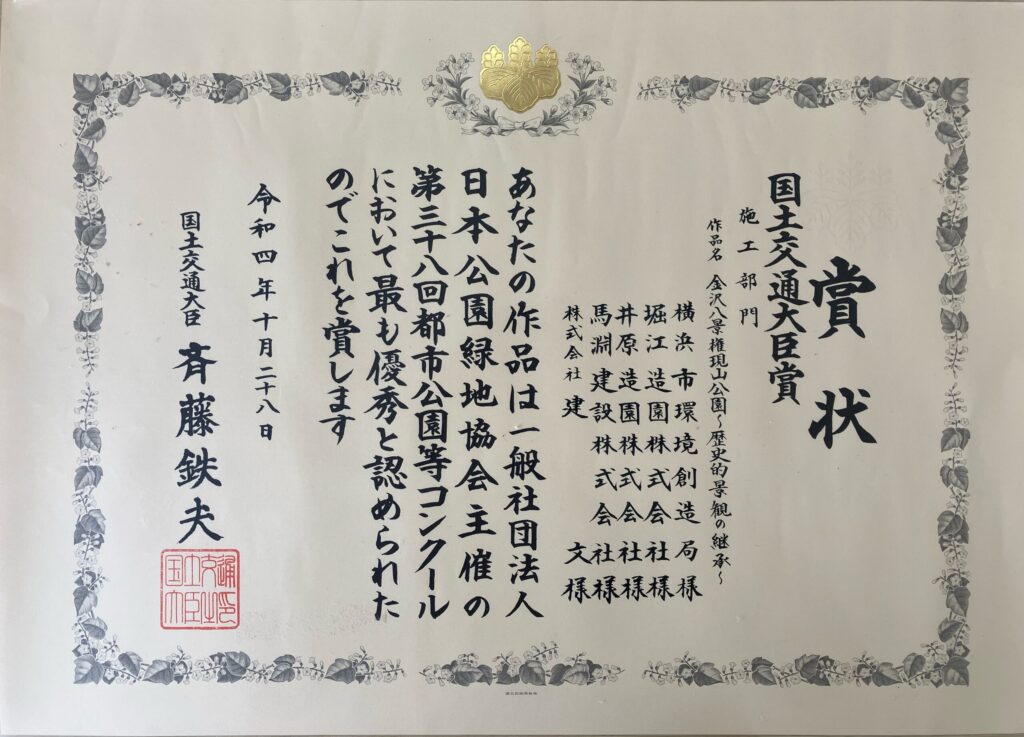 賞状
国土交通大臣賞
施工部門
作品名 金沢八景権現山公園~歴史的景観の継承~
横浜市環境創造局様
堀江造園株式会社様
井原造園株式会社様
馬淵建設株式会社様
株式会社建文様
あなたの作品は一般社団法人
日本公園緑地協会主催の
第三十八回都市公園等コンクール
において最も優秀と認められた
のでこれを賞します
令和四年十月二十八日
国土交通大臣 斉藤鉄夫
国土交通大臣之印